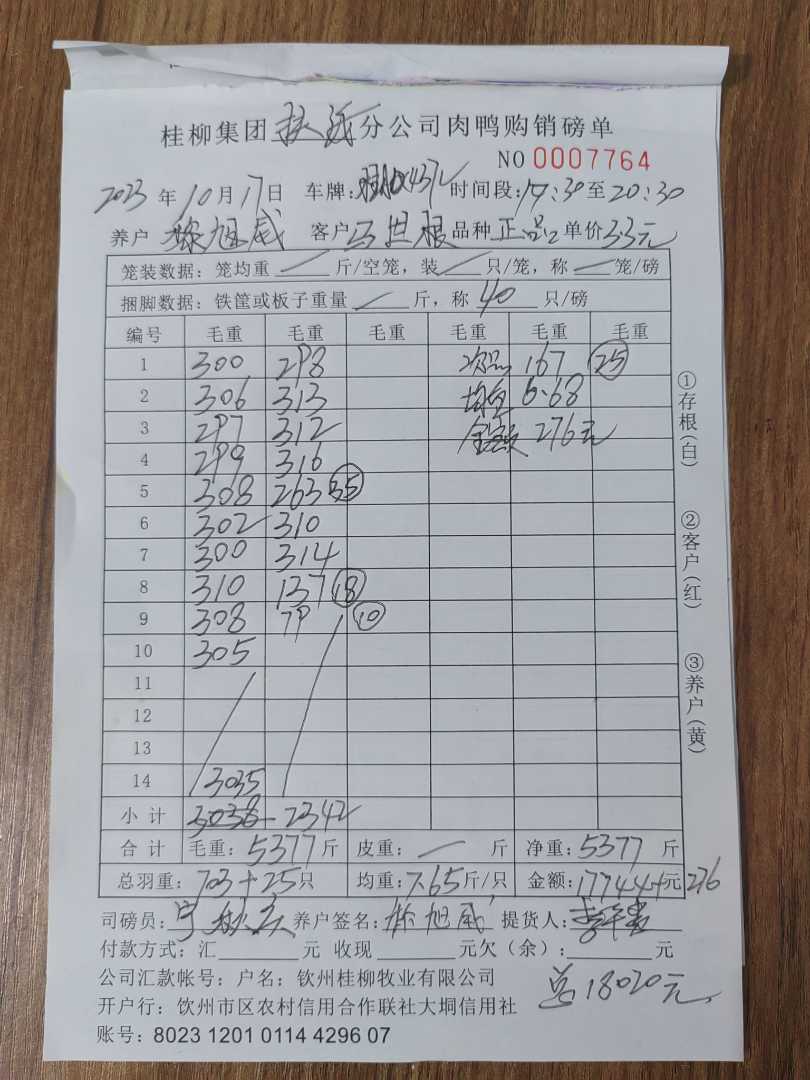 桂柳集团 扶 分公司肉鸭购销磅单
NO 0007764
2023 年 10 月 17 日 车牌: 时间段: 17:30 至 20:30
养户 旭威 客户 马 根 品种 正品 单价 33元
笼装数据: 笼均重 — 斤/空笼, 装 — 只/笼, 称 — 笼/磅
捆脚数据: 铁筐或板子重量 — 斤, 称 40 只/磅
编号 毛重 毛重 毛重 毛重 毛重 毛重
1 300 298 次品 167 25
2 306 313 均重 6.68
3 297 312 金额 276元
4 299 316
5 308 263 35
6 302 310
7 300 314
8 310 137 18
9 308 79 10
10 305
11
12
13
14 3035
小计 2342
合计 毛重: 5377 斤 皮重: — 斤 净重: 5377 斤
总羽重: 703+25 只 均重: 7.65 斤/只 金额: 17744+ 元 276
司磅员: 养户签名: 旭威 提货人:
付款方式: 汇 元 收现 元欠(余): 元
公司汇款帐号: 户名: 钦州桂柳牧业有限公司
总18020元
开户行: 饮州市区农村信用合作联社大垌信用社
账号: 8023 1201 0114 4296 07
①存根(白)
②客户(红)
③养户(黄)